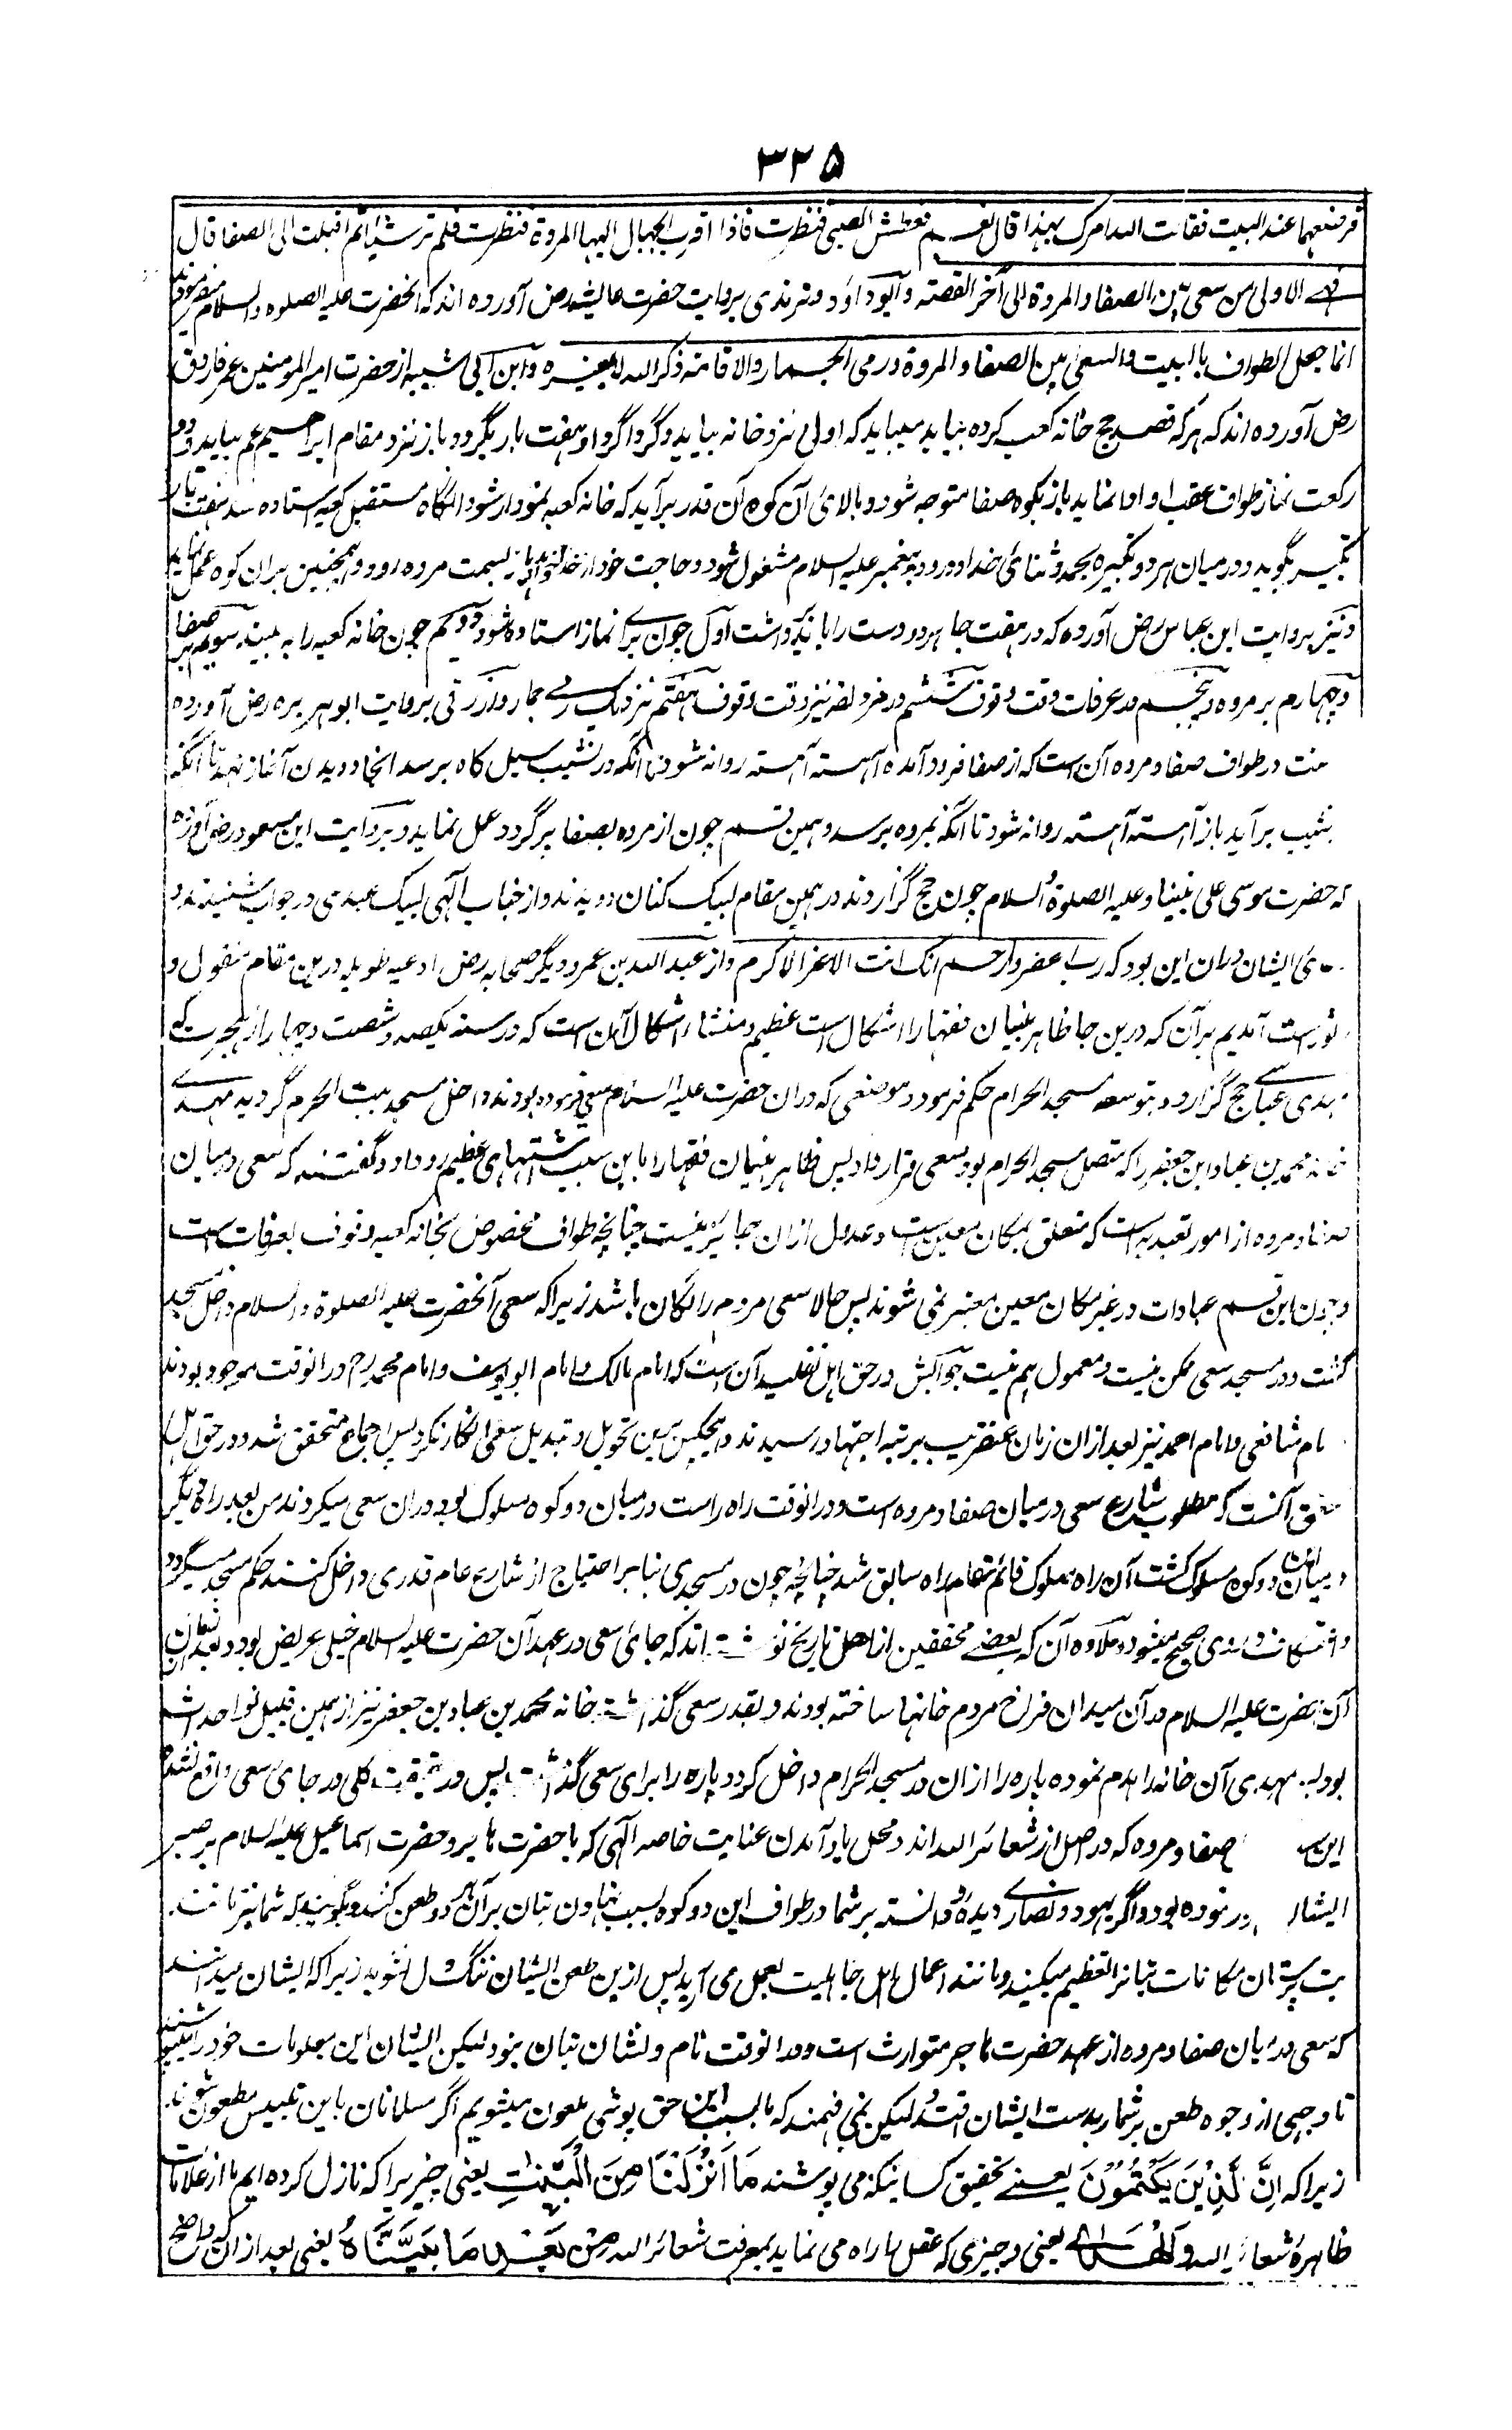 ۳۲۵
فرفعهما عند البیت فقالت الله امرک بهذا قال نعم فعطش الصبی فنظرت فاذا اقرب الجبال الیها المروة فنظرت فلم تر شیئا ثم اقبلت الی الصفا قال
الاولی من سعی بین الصفا والمروة الی آخر القصة و ابوداؤد و ترمذی بروایت حضرت عائشه رض آورده اند که آنحضرت علیه الصلوه والسلام میفرمودند
انما جعل الطواف بالبیت والسعی بین الصفا والمروة ورمی الجمار والاقامة ذکر الله لا لغیره وابن ابی شیبه از حضرت امیر المومنین عمر فاروق
رض آورده اند که هر که قصد حج خانه کعبه کرده بیاید میباید که اول نزد خانه بیاید و گرداگرد او هفت بار بگردد باز نزد مقام ابراهیم عم بیاید و دو
رکعت نماز طواف عقب او ادا نماید باز بکوه صفا متوجه شود و بالای آن کوه آن قدر برآید که خانه کعبه نمودار شود آنگاه مستقبل کعبه استاده شده هفت بار
تکبیر بگوید و در میان هر دو تکبیر بحمد و ثنای خدا و درود پیغمبر علیه السلام مشغول شود و حاجت خود از خدا بخواهد باز بسمت مروه رود و همچنین بران کوه عمل نماید
و نیز بروایت ابن عباس رض آورده که در هفت جا هر دو دست را باید برداشت اول چون برای نماز استاده شود دویم چون خانه کعبه را به بیند سویم بر صفا
و چهارم بر مروه و پنجم در عرفات وقت وقوف ششم در مزدلفه نیز وقت وقوف هفتم نزدیک رمی جمار و ازرقی بروایت ابو هریره رض آورده
سنت در طواف صفا و مروه آن است که از صفا فرود آمده آهسته آهسته روانه شود تا آنکه در نشیب سیل گاه برسد آنجا دویدن آغاز نهد تا آنکه
نشیب برآید باز آهسته آهسته روانه شود تا آنکه بمروه برسد و همین قسم چون از مروه بصفا برگردد عمل نماید و بروایت ابن مسعود رض آورده
که حضرت موسی علی نبینا و علیه الصلوة والسلام چون حج گزاردند در همین مقام لبیک کنان دویدند و از جناب الهی لبیک عبدی در جواب شنیدند و
ایشان دران این بود که رب اغفر وارحم انک انت الاعز الاکرم و از عبد الله بن عمر و دیگر صحابه رض ادعیه طویله درین مقام منقول و
آمدیم بر آن که درین جا ظاهر بنیان فقها را اشکال است عظیم و منشاء اشکال آن است که در سنه یکصد و شصت و چهار از هجرت که
مهدی عباسی حج گزارد و بتوسعه مسجد الحرام حکم فرمود و موضعی که دران حضرت علیه السلام سعی فرموده بودند داخل مسجد بیت الحرم گردید مهدی
خانه محمد بن عباد ابن جعفر را که متصل مسجد الحرام بود مسعی قرار داد پس ظاهر بنیان فقها را باین سبب اشتباهی عظیم رو داد و گفتند که سعی در میان
صفا و مروه از امور تعبدیه است که متعلق بمکان معین است و عدول ازان جایز نیست چنانچه طواف مخصوص بخانه کعبه و وقوف بعرفات است
و چون این قسم عبادات در غیر مکان معین معتبر نمی شوند پس حالا سعی مردم رایگان باشد زیرا که سعی آنحضرت علیه الصلوة والسلام داخل مسجد
گشت و در مسجد سعی ممکن نیست و معمول هم نیست جوابش در حق اهل تقلید آن است که امام مالک و امام ابو یوسف و امام محمد رح در انوقت موجود بودند
امام شافعی و امام احمد نیز بعد ازان زمان عنقریب برتبه اجتهاد رسیدند و هیچکس ازین تحویل و تبدیل مسعی انکار نکرد پس اجماع متحقق شد و در حق اهل
تحقیق آنست که مطلوب شارع سعی درمیان صفا و مروه است و درانوقت راه راست درمیان دو کوه مسلوک بود دران سعی میکردند من بعد راه دیگر
درمیان این دو کوه مسلوک گشت آن راه مسلوک قائم مقام راه سابق شد چنانچه چون در مسجدی بنابر احتیاج از شارع عام قدری داخل کنند حکم مسجد میگیرد
و اعتکاف در وی صحیح میشود و علاوه آن که بعضے محققین از اهل تاریخ نوشته اند که جای سعی در عهد آن حضرت علیه السلام خیلی عریض بود و بعد از زمان
آن حضرت علیه السلام در آن میدان فراخ مردم خانها ساخته بودند و بقدر سعی گذاشته خانه محمد بن عباد بن جعفر نیز از همین قبیل نو احداث
بود مهدی آن خانه را هدم نموده پاره را ازان در مسجد الحرام داخل کرد و پاره را برای سعی گذاشت پس در حقیقت تغیر کلی در جای سعی واقع نشد
صفا و مروه که در اصل از شعائر الله اند و محل یاد آمدن عنایت خاصه الهی که با حضرت هاجره و حضرت اسماعیل علیه السلام بر صبر
ایشان نموده بود و اگر یهود و نصاری دیده و دانسته بر شما در طواف این دو کوه بسبب نهادن بتان بر آن هر دو طعن کنند و بگویند که شما نیز مانند
بت پرستان مکانات بتانرا تعظیم میکنید و مانند اعمال اهل جاهلیت بعمل می آرید پس ازین طعن ایشان تنگ دل نشوید زیرا که ایشان میدانند
که سعی درمیان صفا و مروه از عهد حضرت هاجر متوارث است و در انوقت نام و نشان بتان نبود لیکن ایشان این معلومات خود را میپوشند
تا وجهی از وجوه طعن بر شما بدست ایشان افتد لیکن نمی فهمند که ما بسبب این حق پوشی ملعون میشویم اگر مسلمانان باین تلبیس مطعون شوند
زیرا که اِنَّ الَّذِیْنَ یَکْتُمُوْنَ یعنے تحقیق کسانیکه می پوشند مَا اَنْزَلْنَا مِنَ الْبَیِّنٰتِ یعنی چیزیرا که نازل کرده ایم ما از علامات
ظاهرۀ شعائر الله وَالْهُدٰی یعنی و چیزی که عقل را راه می نماید بمعرفت شعائر الله مِنْ بَعْدِ مَا بَیَّنَّاهُ یعنی بعد ازان که واضح